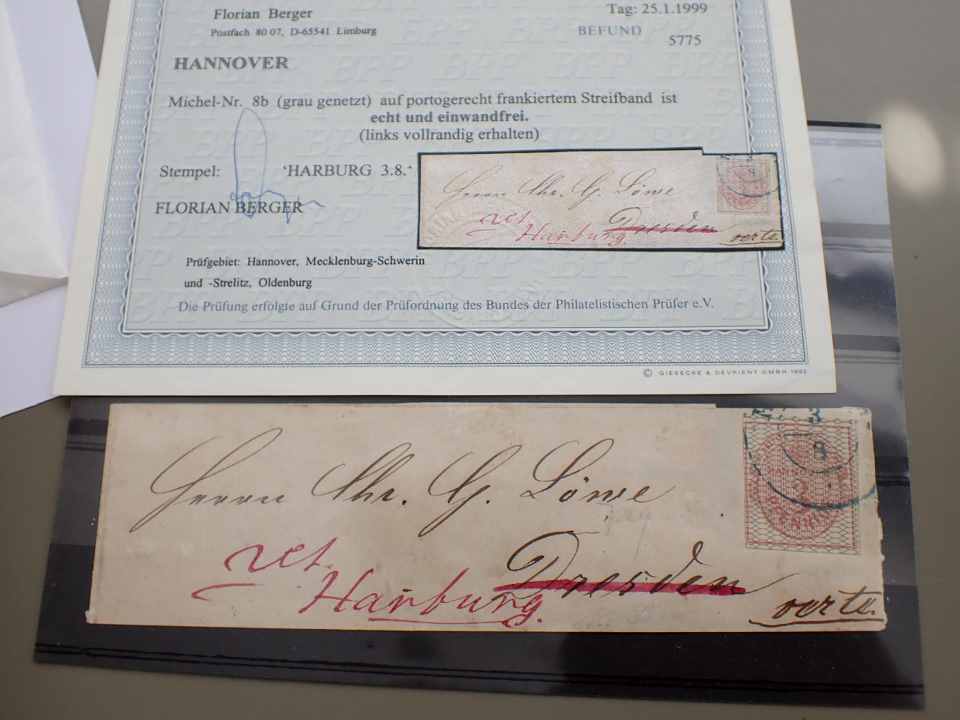 Florian Berger
Tag: 25.1.1999
Postfach 80 07, D-65541 Limburg
BEFUND
5775
HANNOVER
Michel-Nr. 8b (grau genetzt) auf portogerecht frankiertem Streifband ist
echt und einwandfrei.
(links vollrandig erhalten)
Stempel: 'HARBURG 3.8.'
FLORIAN BERGER
Herrn Chr. G. Löwe
ret.
Harburg.
Dresden
verte
Prüfgebiet: Hannover, Mecklenburg-Schwerin
und -Strelitz, Oldenburg
Die Prüfung erfolgte auf Grund der Prüfordnung des Bundes der Philatelistischen Prüfer e.V.
© GIESECKE & DEVRIENT GMBH 1992
3
8
Herrn Chr. G. Löwe
ret.
Dresden
Harburg.
verte.